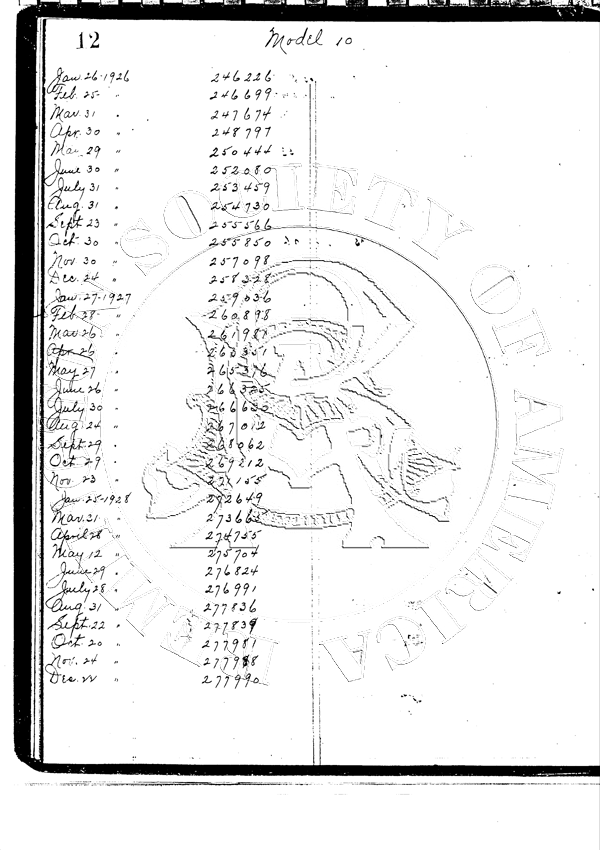 12
Model 10
Jan. 26-1926 246226
Feb. 25- " 246699
Mar. 31 " 247674
Apr. 30 " 248797
Mar. 29 " 250444
June 30 " 252080
July 31 " 253459
Aug. 31 " 254730
Sept. 23 " 255566
Oct. 30 " 255850
Nov. 30 " 257098
Dec. 24 " 258328
Jan. 27-1927 259036
Feb. 28- " 260898
Mar. 26 " 261987
Apr. 26 "
May. 27 " 265376
June 26 "
July 30 "
Aug. 24 " 267012
Sept. 29 " 268062
Oct. 29 " 269212
Nov. 23 " 271155
Jan. 25-1928 272649
Mar. 31 "
April 28 " 274755
May 12 " 275704
June 29 " 276824
July 28 " 276991
Aug. 31 " 277836
Sept. 22 " 277839
Oct. 20 " 277981
Nov. 24 " 277988
Dec. 22 " 277990
SOCIETY OF AMERICA